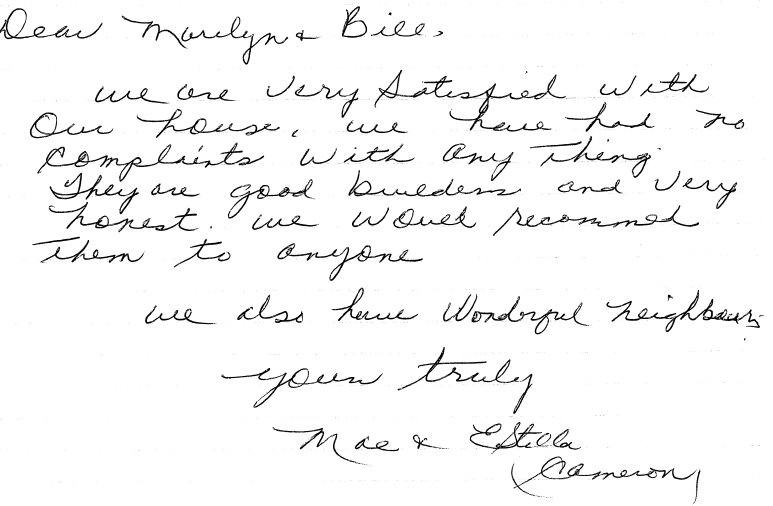 Dear Marilyn & Bill,
we are very satisfied with
our house, we have had no
complaints with any thing.
They are good builders and very
honest. we would recommed
them to anyone
we also have wonderful neighbours.
yours truly
Mae & Estella
Cameron